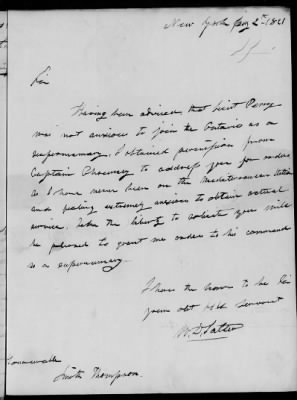 New York Jany 2nd 1821
Sir
Having been advised that Lieut Percy
was not anxious to join the Ontario as a
supernumerary. I obtained permission from
Captain Chauncey to address you for orders
as I have never been on the Mediterranean station
and feeling extremely anxious to obtain actual
service. take the liberty to solicit you will
be pleased to grant me orders to his command
as a supernumerary.
I have the honor to be Sir
your obt Hbl Servant
W. D. Salter
Honourable
Smith Thompson.